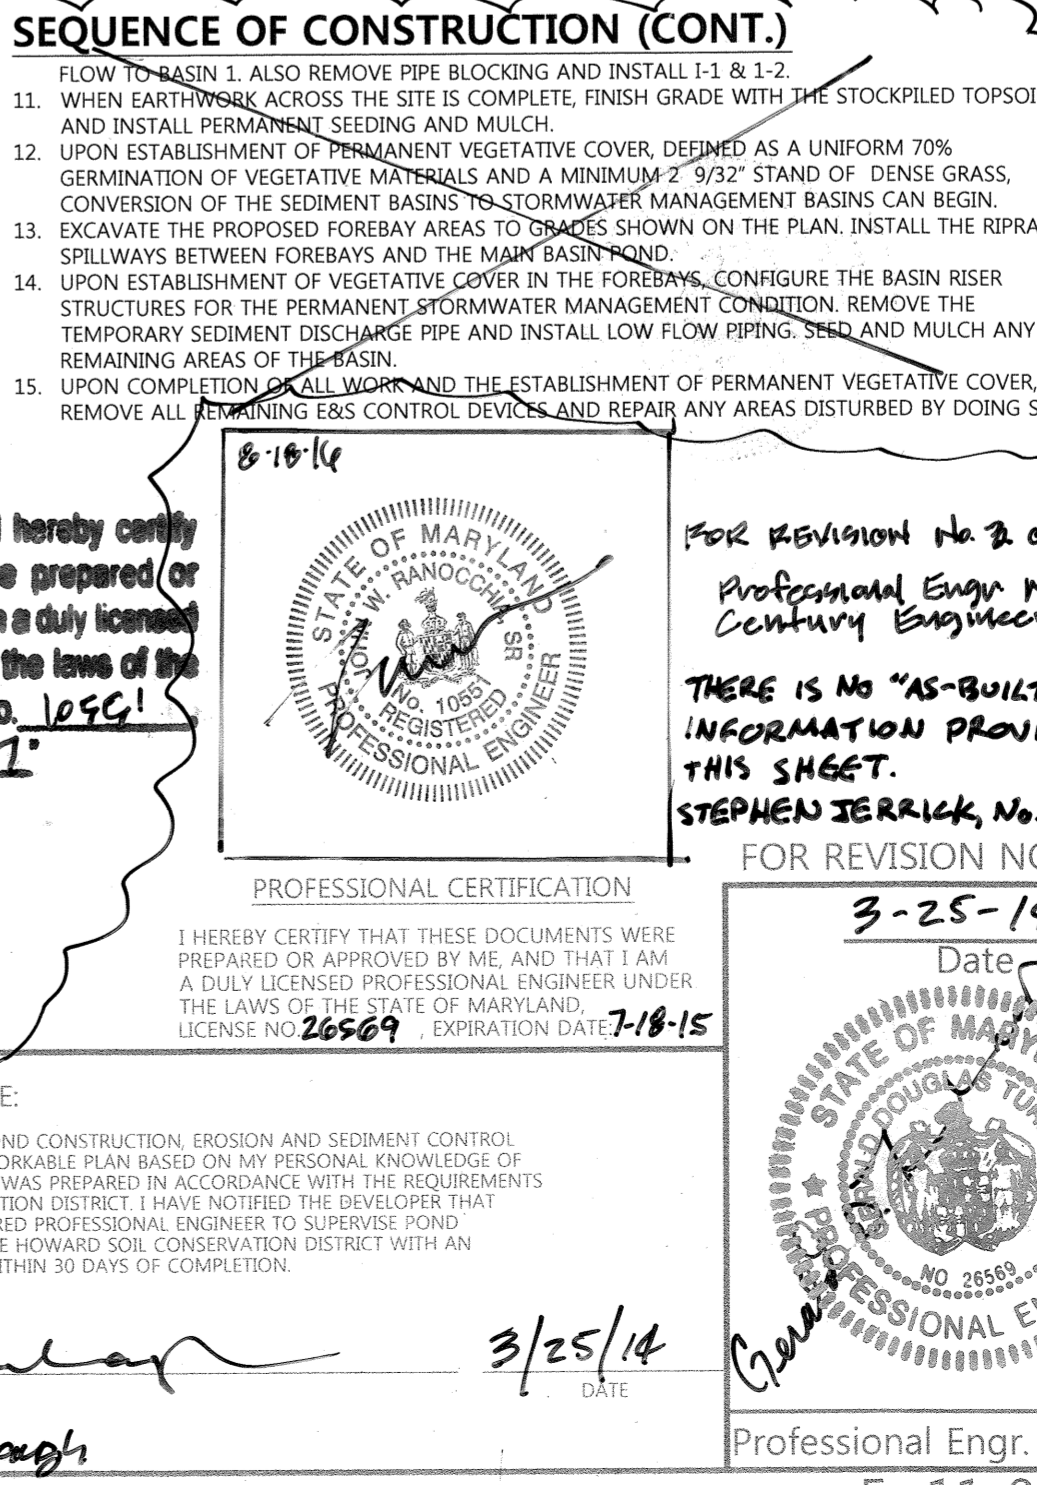 SEQUENCE OF CONSTRUCTION (CONT.)
FLOW TO BASIN 1. ALSO REMOVE PIPE BLOCKING AND INSTALL I-1 & 1-2.
11. WHEN EARTHWORK ACROSS THE SITE IS COMPLETE, FINISH GRADE WITH THE STOCKPILED TOPSOI
AND INSTALL PERMANENT SEEDING AND MULCH.
12. UPON ESTABLISHMENT OF PERMANENT VEGETATIVE COVER, DEFINED AS A UNIFORM 70%
GERMINATION OF VEGETATIVE MATERIALS AND A MINIMUM 2 9/32" STAND OF DENSE GRASS,
CONVERSION OF THE SEDIMENT BASINS TO STORMWATER MANAGEMENT BASINS CAN BEGIN.
13. EXCAVATE THE PROPOSED FOREBAY AREAS TO GRADES SHOWN ON THE PLAN. INSTALL THE RIPRA
SPILLWAYS BETWEEN FOREBAYS AND THE MAIN BASIN POND.
14. UPON ESTABLISHMENT OF VEGETATIVE COVER IN THE FOREBAYS, CONFIGURE THE BASIN RISER
STRUCTURES FOR THE PERMANENT STORMWATER MANAGEMENT CONDITION. REMOVE THE
TEMPORARY SEDIMENT DISCHARGE PIPE AND INSTALL LOW FLOW PIPING. SEED AND MULCH ANY
REMAINING AREAS OF THE BASIN.
15. UPON COMPLETION OF ALL WORK AND THE ESTABLISHMENT OF PERMANENT VEGETATIVE COVER,
REMOVE ALL REMAINING E&S CONTROL DEVICES AND REPAIR ANY AREAS DISTURBED BY DOING S
8-18-16
hereby certify
e prepared or
a duly licensed
the laws of the
STATE OF MARYLAND
JOHN W. RANOCCHIA, SR
No. 10551
REGISTERED
PROFESSIONAL ENGINEER
FOR REVISION No.
Professional Engr
Century Engineer
THERE IS NO "AS-BUILT
INFORMATION PROVI
THIS SHEET.
STEPHEN JERRICK, No.
FOR REVISION NO
PROFESSIONAL CERTIFICATION
I HEREBY CERTIFY THAT THESE DOCUMENTS WERE
PREPARED OR APPROVED BY ME, AND THAT I AM
A DULY LICENSED PROFESSIONAL ENGINEER UNDER
THE LAWS OF THE STATE OF MARYLAND,
LICENSE NO. 26569 , EXPIRATION DATE: 7-18-15
3-25-1
Date
STATE OF MARY
GERALD DOUGLAS TU
NO 26569
PROFESSIONAL E
E:
ND CONSTRUCTION, EROSION AND SEDIMENT CONTROL
ORKABLE PLAN BASED ON MY PERSONAL KNOWLEDGE OF
WAS PREPARED IN ACCORDANCE WITH THE REQUIREMENTS
TION DISTRICT. I HAVE NOTIFIED THE DEVELOPER THAT
RED PROFESSIONAL ENGINEER TO SUPERVISE POND
E HOWARD SOIL CONSERVATION DISTRICT WITH AN
ITHIN 30 DAYS OF COMPLETION.
3/25/14
DATE
Professional Engr.